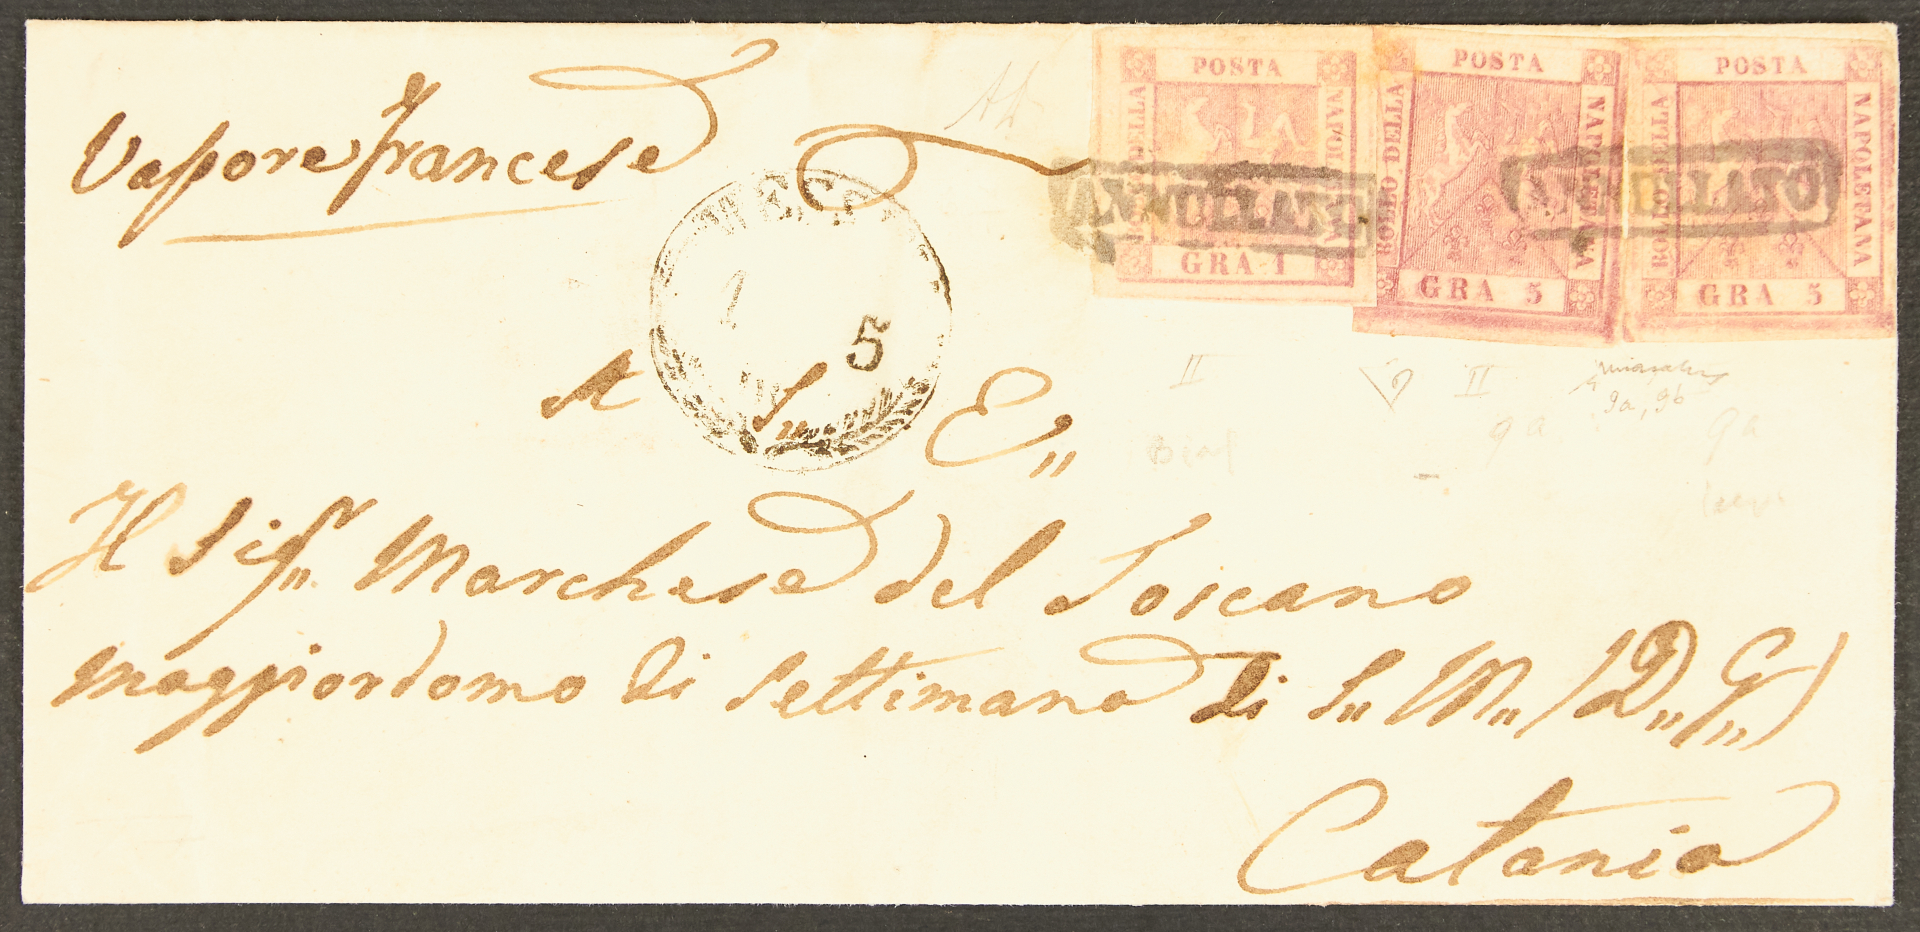 Vapore francese
POSTA
BOLLO DELLA
NAPOLETANA
GRA 1
ANNULLATO
POSTA
BOLLO DELLA
NAPOLETANA
GRA 5
POSTA
BOLLO DELLA
NAPOLETANA
GRA 5
ANNULLATO
1
5
II
II
9a, 9b
9a
9a
A S„ E„
Il Sig„r Marchese del Toscano
maggiordomo di Settimana di S„ M„ (D„ G„)
Catania